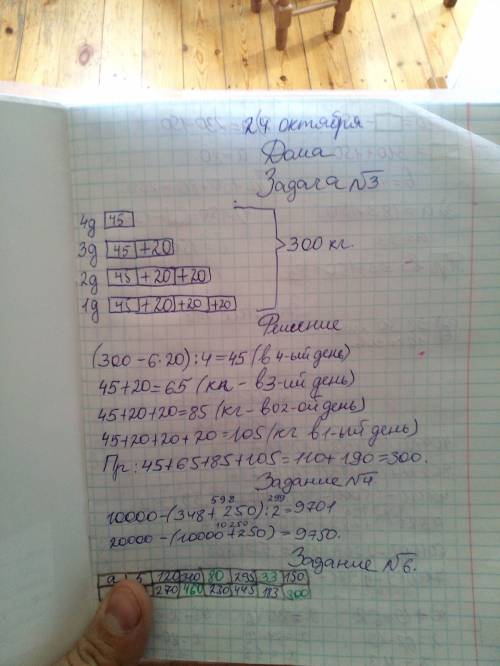 24 октября
Дома
Задача №3
4д 45
3д 45 +20
2д 45 +20 +20
1д 45 +20 +20 +20
300 кг.
Решение
(300-6·20):4=45(в 4-ый день)
45+20=65(кг - в 3-ий день)
45+20+20=85(кг - во 2-ой день)
45+20+20+20=105(кг в 1-ый день)
Пр.: 45+65+85+105=110+190=300.
Задание №4
598 299
10000-(348+250):2=9701
10250
20000-(10000+250)=9750.
Задание №6.
120 80 295 33 150
270 460 230 445 183 300